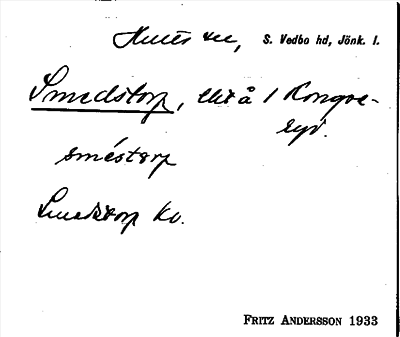 Hults sn, S. Vedbo hd, Jönk. l.
Smedstorp, litt å / Konga-
ryd.
sméstorp
Smedstorp kv.
FRITZ ANDERSSON 1933